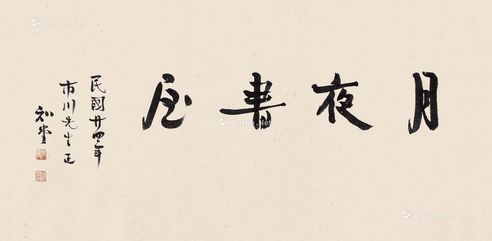 月夜書屋
民國廿四年
市川先生正
知堂